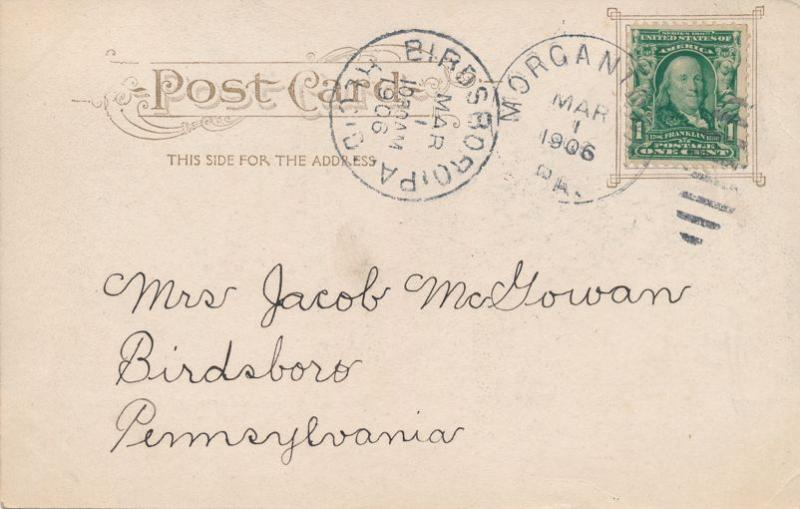 Post Card
THIS SIDE FOR THE ADDRESS
BIRDSBORO, PA
MAR
1
1906
MORGANT
MAR
1
1906
PA.
SERIES 1902
UNITED STATES OF
AMERICA
1 FRANKLIN 1
POSTAGE
ONE CENT
Mrs Jacob McGowan
Birdsboro
Pennsylvania